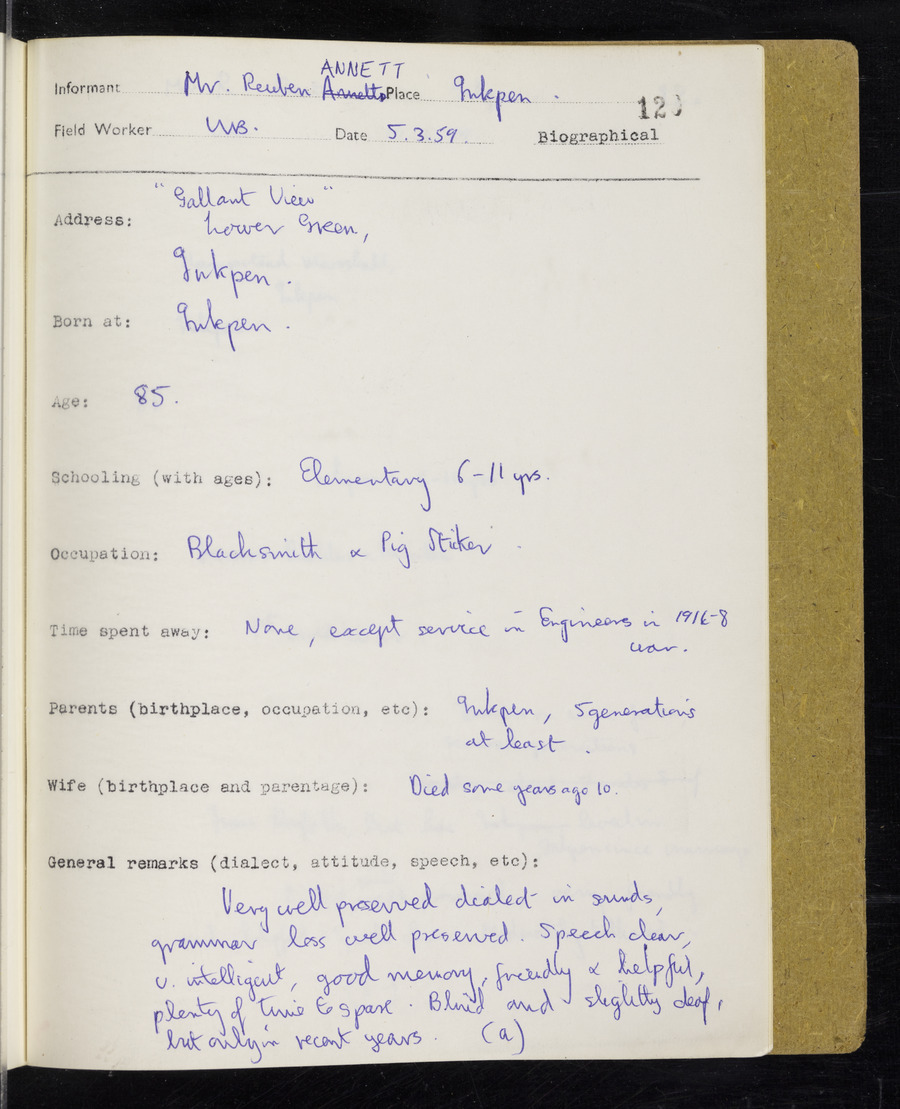 ANNETT
Informant Mr. Reuben Annetts Place Inkpen .
120
Field Worker WB. Date 5.3.59. Biographical
"Gallant View"
Address: Lower Green,
Inkpen .
Born at: Inkpen .
Age: 85.
Schooling (with ages): Elementary 6-11 yrs.
Occupation: Blacksmith & Pig Sticker .
Time spent away: None, except service in Engineers in 1916-8
war.
Parents (birthplace, occupation, etc): Inkpen, 5 generations
at least .
Wife (birthplace and parentage): Died some years ago 10.
General remarks (dialect, attitude, speech, etc):
Very well preserved dialect in sounds,
grammar less well preserved. Speech clear,
v. intelligent, good memory, friendly & helpful,
plenty of time to spare. Blind and slightly deaf,
but only in recent years. (a)